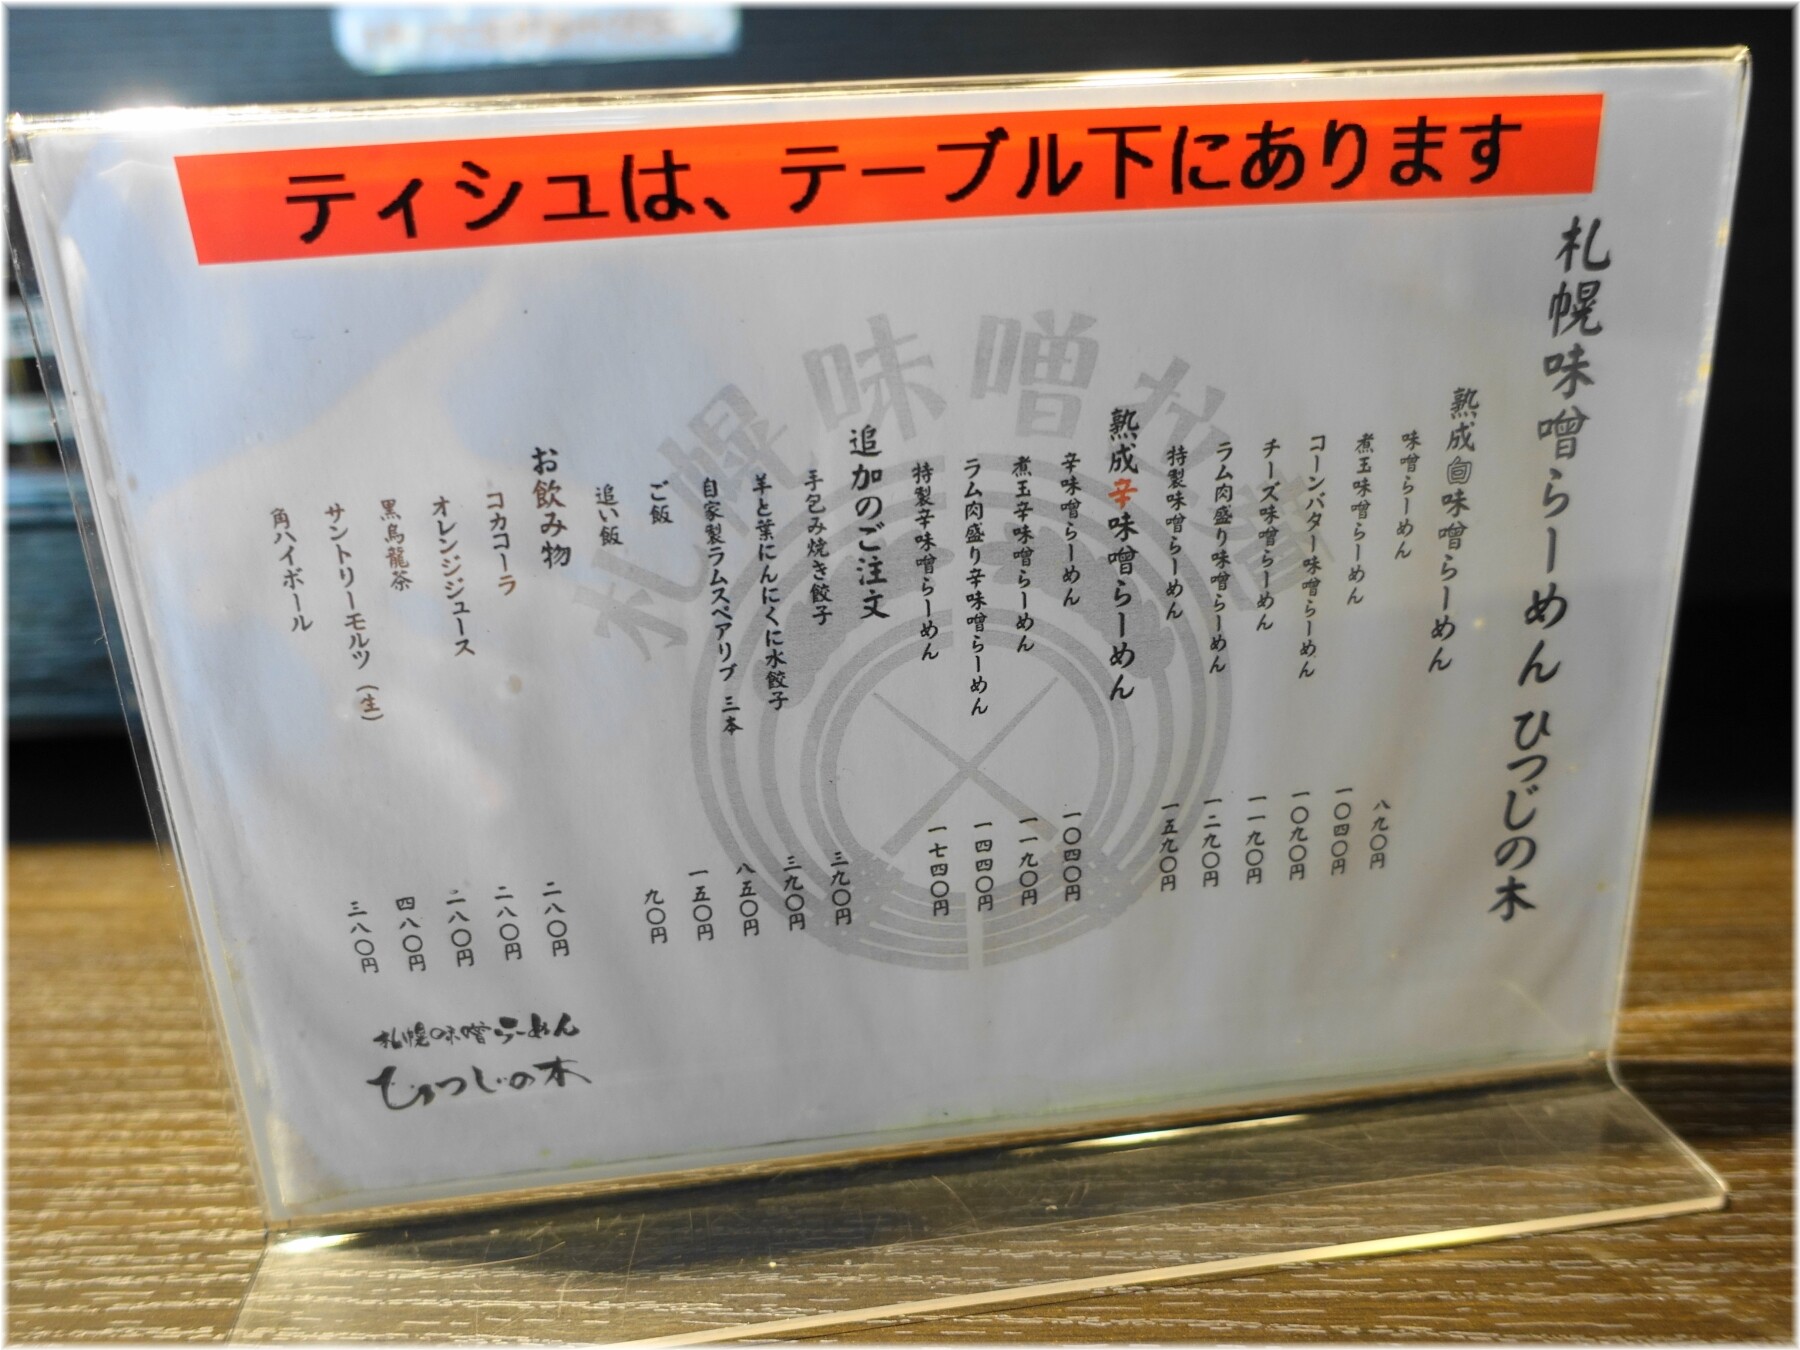 ティシュは、テーブル下にあります
札幌味噌らーめん ひつじの木
熟成味噌らーめん
味噌らーめん 八九〇円
煮玉味噌らーめん 一〇四〇円
コーンバター味噌らーめん 一〇九〇円
チーズ味噌らーめん 一一九〇円
ラム肉盛り味噌らーめん 一二九〇円
特製味噌らーめん 一五九〇円
熟成辛味噌らーめん
辛味噌らーめん 一〇四〇円
煮玉辛味噌らーめん 一一九〇円
ラム肉盛り辛味噌らーめん 一四四〇円
特製辛味噌らーめん 一七四〇円
追加のご注文
手包み焼き餃子 三九〇円
羊と葉にんにくに水餃子 三九〇円
自家製ラムスペアリブ 三本 八五〇円
ご飯 一五〇円
追い飯 九〇円
お飲み物
コカコーラ 二八〇円
オレンジジュース 二八〇円
黒烏龍茶 二八〇円
サントリーモルツ（生） 四八〇円
角ハイボール 三八〇円
札幌味噌らーめん
ひつじの木
札幌味噌